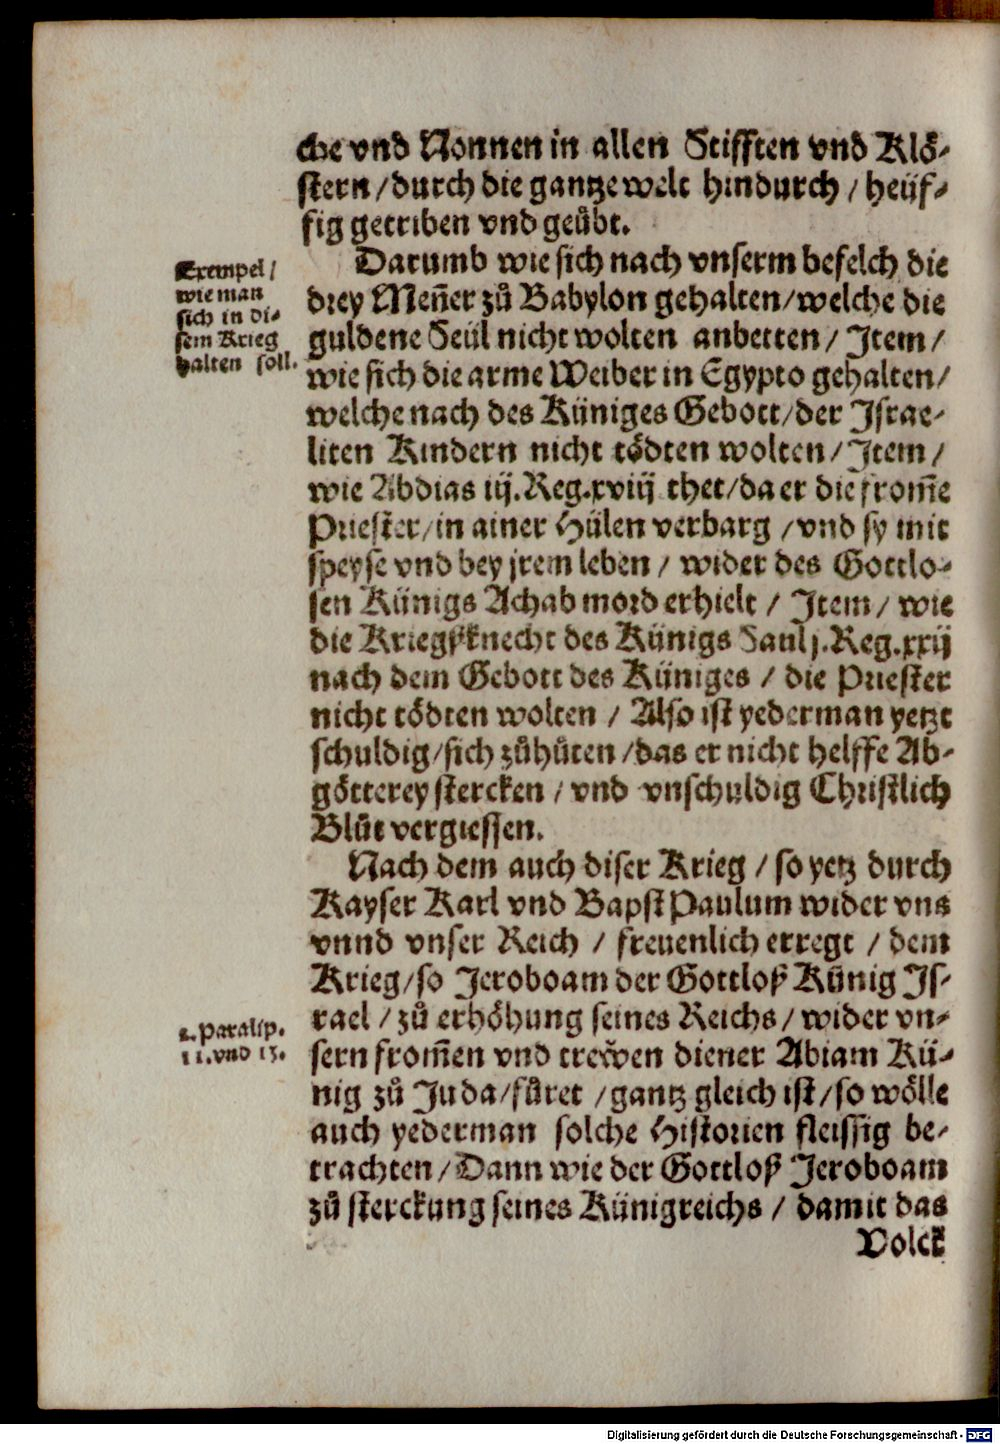 che vnd Nonnen in allen Stifften vnd Klö-
stern / durch die gantze welt hindurch / heüf-
fig getriben vnd geübt.
Exempel /
wie man
sich in di-
sem Krieg
halten soll.
Darumb wie sich nach vnserm befelch die
drey Men̄er zů Babylon gehalten / welche die
guldene Seül nicht wolten anbetten / Item /
wie sich die arme Weiber in Egypto gehalten /
welche nach des Küniges Gebott / der Israe-
liten Kindern nicht tödten wolten / Item /
wie Abdias iij. Reg. xviij thet / da er die from̄e
Priester / in ainer Hülen verbarg / vnd sy mit
speyse vnd bey jrem leben / wider des Gottlo-
sen Künigs Achab mord erhielt / Item / wie
die Kriegßknecht des Künigs Saul j. Reg. xxij
nach dem Gebott des Küniges / die Priester
nicht tödten wolten / Also ist yederman yetzt
schuldig / sich zůhüten / das er nicht helffe Ab-
götterey stercken / vnd vnschuldig Christlich
Blůt vergiessen.
Nach dem auch diser Krieg / so yetz durch
Kayser Karl vnd Bapst Paulum wider vns
vnnd vnser Reich / freuenlich erregt / dem
Krieg / so Jeroboam der Gottloß Künig Is-
rael / zů erhöhung seines Reichs / wider vn-
2. Paralip.
11. vnd 13.
sern from̄en vnd trewen diener Abiam Kü-
nig zů Juda / füret / gantz gleich ist / so wölle
auch yederman solche Historien fleissig be-
trachten / Dann wie der Gottloß Jeroboam
zů sterckung seines Künigreichs / damit das
Volck
Digitalisierung gefördert durch die Deutsche Forschungsgemeinschaft - DFG